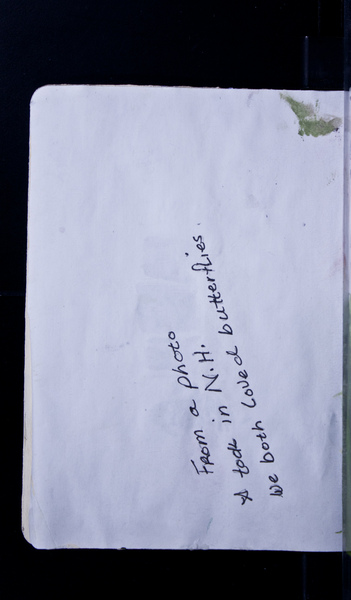 From a photo
A took in N.H.
We both loved butterflies.